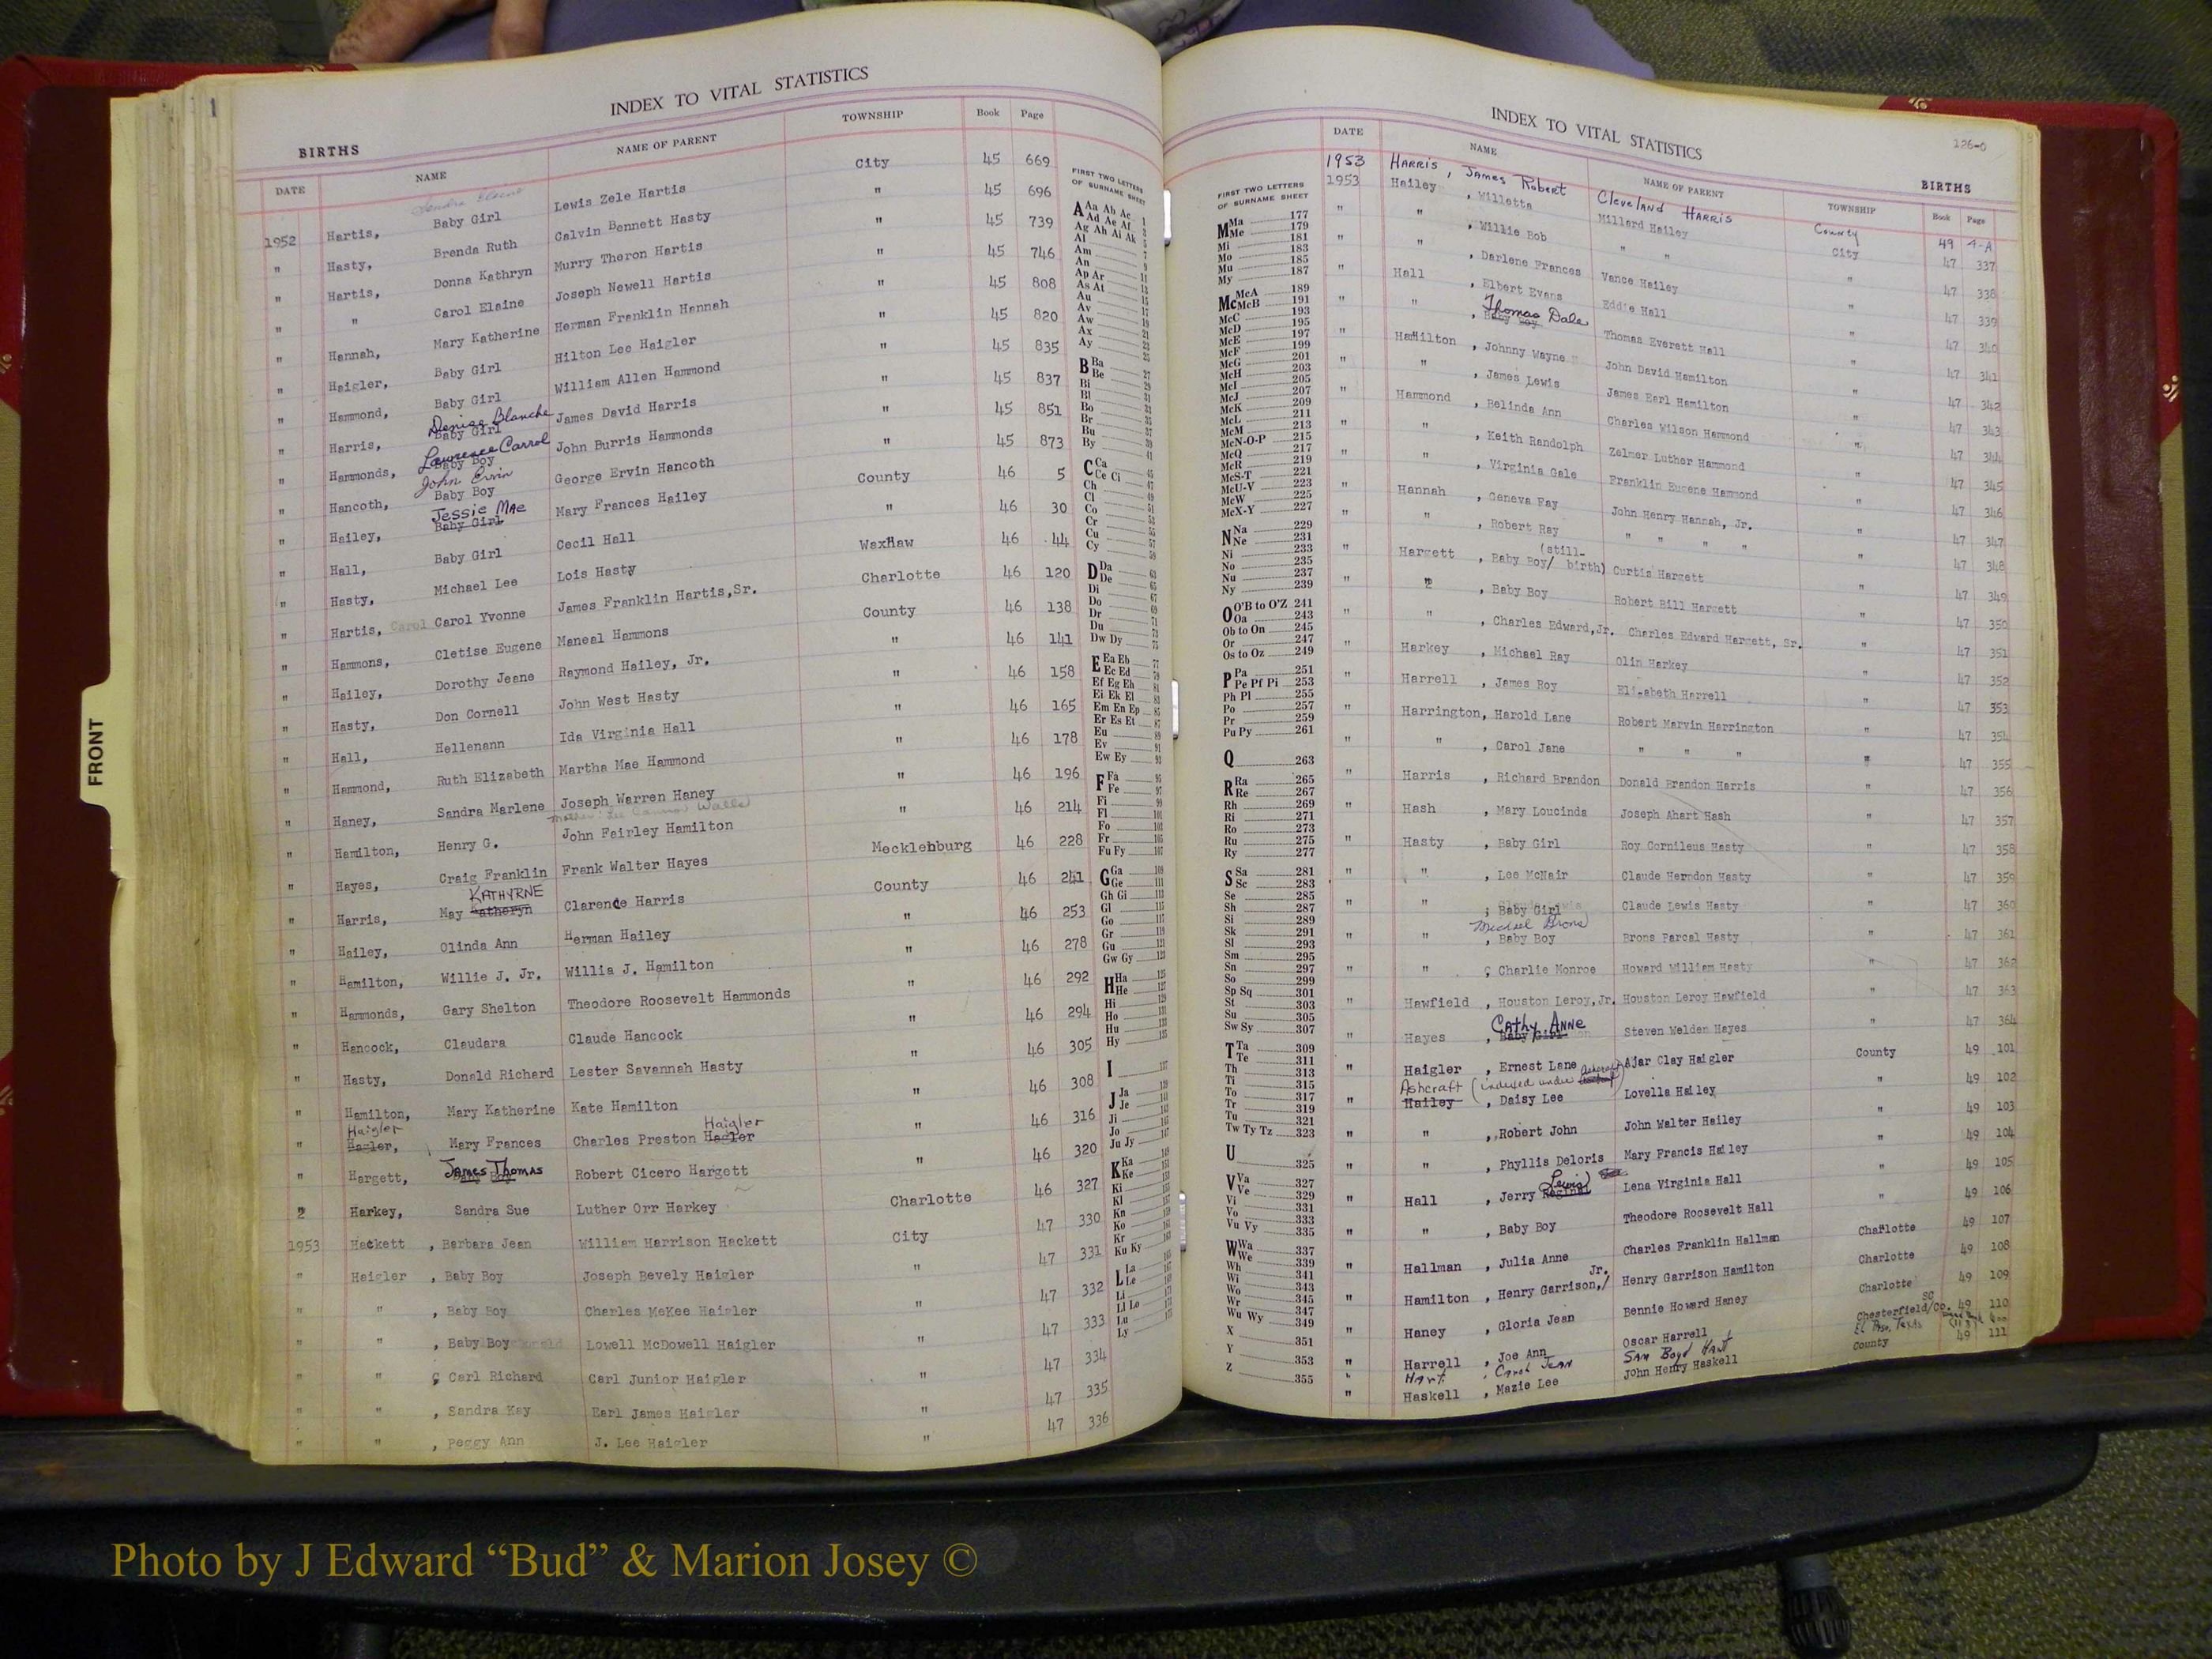 1
INDEX TO VITAL STATISTICS
BIRTHS
DATE NAME NAME OF PARENT TOWNSHIP Book Page
Sandra Elaine
1952 Hartis, Baby Girl Lewis Zele Hartis City 45 669
" Hasty, Brenda Ruth Calvin Bennett Hasty " 45 696
" Hartis, Donna Kathryn Murry Theron Hartis " 45 739
" " Carol Elaine Joseph Newell Hartis " 45 746
" Hannah, Mary Katherine Herman Franklin Hannah " 45 808
" Haigler, Baby Girl Hilton Lee Haigler " 45 820
" Hammond, Baby Girl William Allen Hammond " 45 835
Denise Blanche
" Harris, Baby Girl James David Harris " 45 837
Lawrence Carrol
" Hammonds, Baby Boy John Burris Hammonds " 45 851
John Ervin
" Hancoth, Baby Boy George Ervin Hancoth " 45 873
Jessie Mae
" Hailey, Baby Girl Mary Frances Hailey County 46 5
" Hall, Baby Girl Cecil Hall " 46 30
" Hasty, Michael Lee Lois Hasty Waxhaw 46 44
" Hartis, Carol Carol Yvonne James Franklin Hartis,Sr. Charlotte 46 120
" Hammons, Cletise Eugene Maneal Hammons County 46 138
" Hailey, Dorothy Jeane Raymond Hailey, Jr. " 46 141
" Hasty, Don Cornell John West Hasty " 46 158
" Hall, Hellenann Ida Virginia Hall " 46 165
" Hammond, Ruth Elizabeth Martha Mae Hammond " 46 178
" Haney, Sandra Marlene Joseph Warren Haney " 46 196
" Hamilton, Henry G. John Fairley Hamilton " 46 214
" Hayes, Craig Franklin Frank Walter Hayes Mecklenburg 46 228
KATHYRNE
" Harris, May Katheryn Clarence Harris County 46 241
" Hailey, Olinda Ann Herman Hailey " 46 253
" Hamilton, Willie J. Jr. Willia J. Hamilton " 46 278
" Hammonds, Gary Shelton Theodore Roosevelt Hammonds " 46 292
" Hancock, Claudara Claude Hancock " 46 294
" Hasty, Donald Richard Lester Savannah Hasty " 46 305
" Hamilton, Mary Katherine Kate Hamilton " 46 308
Haigler Haigler
" Hagler, Mary Frances Charles Preston Hagler " 46 316
James Thomas
" Hargett, Baby Boy Robert Cicero Hargett " 46 320
2 Harkey, Sandra Sue Luther Orr Harkey Charlotte 46 327
1953 Hackett , Barbara Jean William Harrison Hackett City 47 330
" Haigler , Baby Boy Joseph Bevely Haigler " 47 331
" " , Baby Boy Charles McKee Haigler " 47 332
" " , Baby Boy Lowell McDowell Haigler " 47 333
" " , Carl Richard Carl Junior Haigler " 47 334
" " , Sandra Kay Earl James Haigler " 47 335
" " , Peggy Ann J. Lee Haigler " 47 336
FIRST TWO LETTERS
OF SURNAME SHEET
A Aa Ab Ac 1
Ad Ae Af
Ag Ah Ai Ak
Al
Am
An
Ap Ar
As At
Au
Av
Aw
Ax
Ay
B Ba
Be
Bi
Bl
Bo
Br
Bu
By
C Ca
Ce Ci
Ch
Cl
Co
Cr
Cu
Cy
D Da
De
Di
Do
Dr
Du
Dw Dy
E Ea Eb
Ec Ed
Ef Eg Eh
Ei Ek El
Em En Ep
Er Es Et
Eu
Ev
Ew Ey
F Fa
Fe
Fi
Fl
Fo
Fr
Fu Fy
G Ga
Ge
Gh Gi
Gl
Go
Gr
Gu
Gw Gy
H Ha
He
Hi
Ho
Hu
Hy
I
J Ja
Je
Ji
Jo
Ju Jy
K Ka
Ke
Ki
Kl
Kn
Ko
Kr
Ku Ky
L La
Le
Li
Ll Lo
Lu
Ly
INDEX TO VITAL STATISTICS
126-0
BIRTHS
DATE NAME NAME OF PARENT TOWNSHIP Book Page
FIRST TWO LETTERS
OF SURNAME SHEET
M Ma 177
Me 179
Mi 181
Mo 183
Mu 185
My 187
Mc McA 189
McB 191
McC 193
McD 195
McE 197
McF 199
McG 201
McH 203
McI 205
McJ 207
McK 209
McL 211
McM 213
McN-O-P 215
McQ 217
McR 219
McS-T 221
McU-V 223
McW 225
McX-Y 227
N Na 229
Ne 231
Ni 233
No 235
Nu 237
Ny 239
O O'B to O'Z 241
Oa 243
Ob to On 245
Or 247
Os to Oz 249
P Pa 251
Pe Pf Pi 253
Ph Pl 255
Po 257
Pr 259
Pu Py 261
Q 263
R Ra 265
Re 267
Rh 269
Ri 271
Ro 273
Ru 275
Ry 277
S Sa 281
Sc 283
Se 285
Sh 287
Si 289
Sk 291
Sl 293
Sm 295
Sn 297
So 299
Sp Sq 301
St 303
Su 305
Sw Sy 307
T Ta 309
Te 311
Th 313
Ti 315
To 317
Tr 319
Tu 321
Tw Ty Tz 323
U 325
V Va 327
Ve 329
Vi 331
Vo 333
Vu Vy 335
W Wa 337
We 339
Wh 341
Wi 343
Wo 345
Wr 347
Wu Wy 349
X 351
Y 353
Z 355
1953 HARRIS, James Robert Cleveland HARRIS County 49 4-A
1953 Hailey , Willetta Millard Hailey City 47 337
" " , Willie Bob " " " 47 338
" " , Darlene Frances Vance Hailey " 47 339
" Hall , Elbert Evans Eddie Hall " 47 340
Thomas Dale
" " , Baby Boy Thomas Everett Hall " 47 341
" Hamilton , Johnny Wayne John David Hamilton " 47 342
" " , James Lewis James Earl Hamilton " 47 343
" Hammond , Belinda Ann Charles Wilson Hammond " 47 344
" " , Keith Randolph Zelmer Luther Hammond " 47 345
" " , Virginia Gale Franklin Eugene Hammond " 47 346
" Hannah , Geneva Fay John Henry Hannah, Jr. " 47 347
" " , Robert Ray " " " " " 47 348
(still-
" Hargett , Baby Boy/ birth) Curtis Hargett " 47 349
" " , Baby Boy Robert Bill Hargett " 47 350
" " , Charles Edward,Jr. Charles Edward Hargett, Sr. " 47 351
" Harkey , Michael Ray Olin Harkey " 47 352
" Harrell , James Roy Elizabeth Harrell " 47 353
" Harrington, Harold Lane Robert Marvin Harrington " 47 354
" " , Carol Jane " " " " 47 355
" Harris , Richard Brandon Donald Brandon Harris " 47 356
" Hash , Mary Loucinda Joseph Ahart Hash " 47 357
" Hasty , Baby Girl Roy Cornileus Hasty " 47 358
" " , Lee McNair Claude Herndon Hasty " 47 359
" " , Baby Girl Claude Lewis Hasty " 47 360
Michael Brons
" " , Baby Boy Brons Parcal Hasty " 47 361
" " , Charlie Monroe Howard William Hasty " 47 362
" Hawfield , Houston Leroy,Jr. Houston Leroy Hawfield " 47 363
Cathy Anne
" Hayes , Baby Girl Steven Welden Hayes " 47 364
" Haigler , Ernest Lane Ajar Clay Haigler County 49 101
Ashcraft (indexed under Ashcraft)
" Hailey , Daisy Lee Lovella Hailey " 49 102
" " , Robert John John Walter Hailey " 49 103
" " , Phyllis Deloris Mary Francis Hailey " 49 104
Lewis
" Hall , Jerry Reginal Lena Virginia Hall " 49 105
" " , Baby Boy Theodore Roosevelt Hall " 49 106
" Hallman , Julia Anne Charles Franklin Hallman Charlotte 49 107
Jr.
" Hamilton , Henry Garrison,/ Henry Garrison Hamilton Charlotte 49 108
" Haney , Gloria Jean Bennie Howard Haney Charlotte 49 109
SC
" Harrell , Joe Ann Oscar Harrell Chesterfield/Co. 49 110
" Hart , Carol Jean Sam Boyd Hart El Paso, Texas
" Haskell , Mazie Lee John Henry Haskell County 49 111
FRONT
Photo by J Edward “Bud” & Marion Josey ©